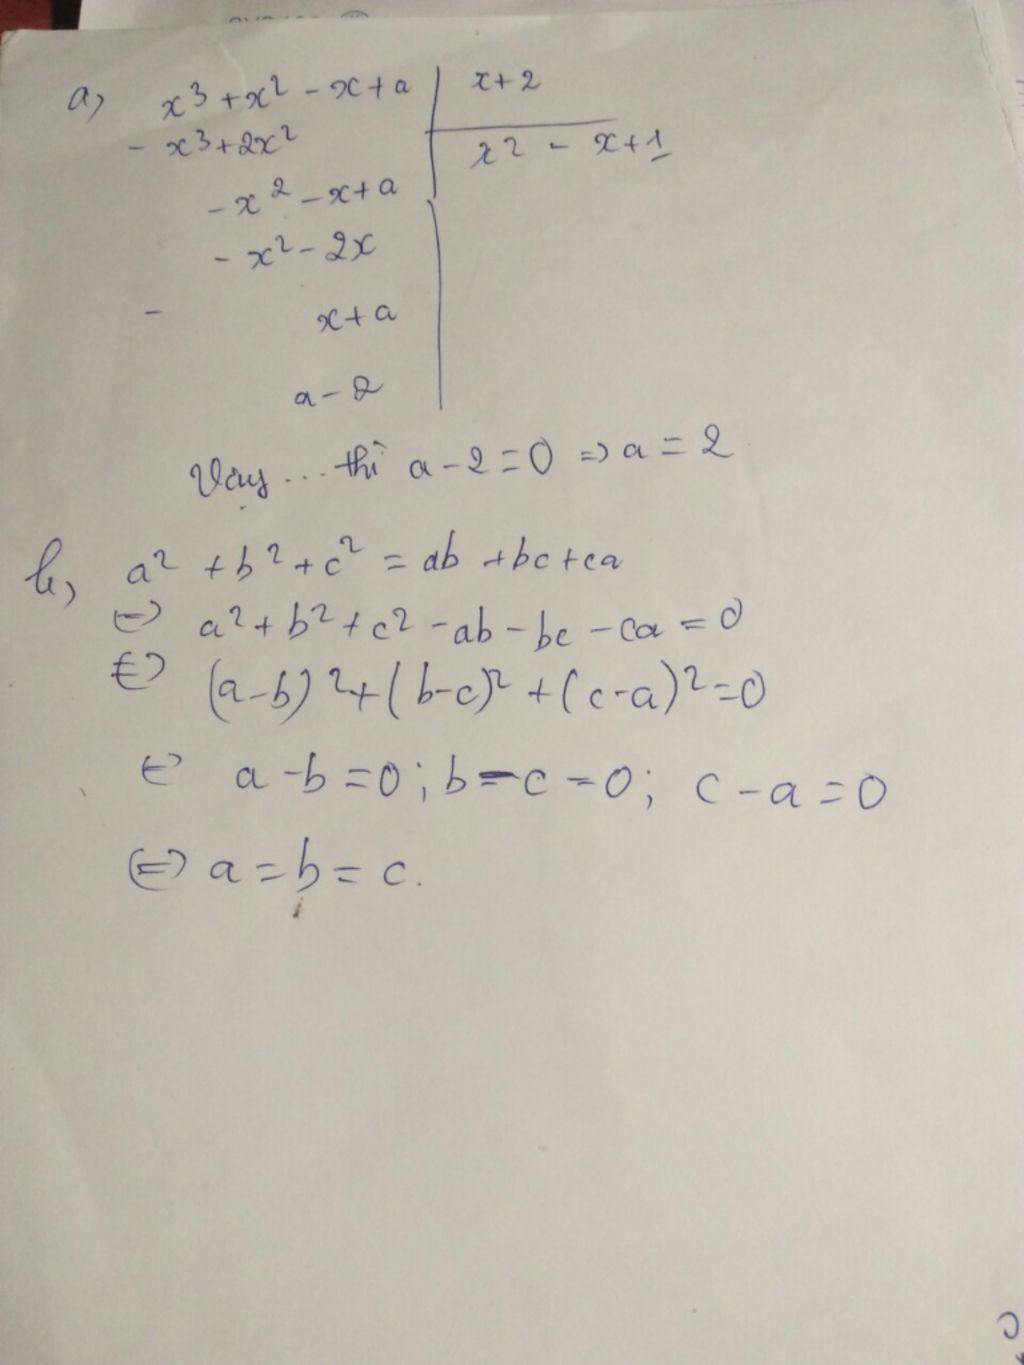 a, x³ + x² - x + a | x + 2
- x³ + 2x² | x² - x + 1
- x² - x + a
- x² - 2x
- x + a
a - 2
Vậy ... thì a - 2 = 0 => a = 2
b, a² + b² + c² = ab + bc + ca
<=> a² + b² + c² - ab - bc - ca = 0
<=> (a-b)² + (b-c)² + (c-a)² = 0
<=> a - b = 0; b - c = 0; c - a = 0
<=> a = b = c.